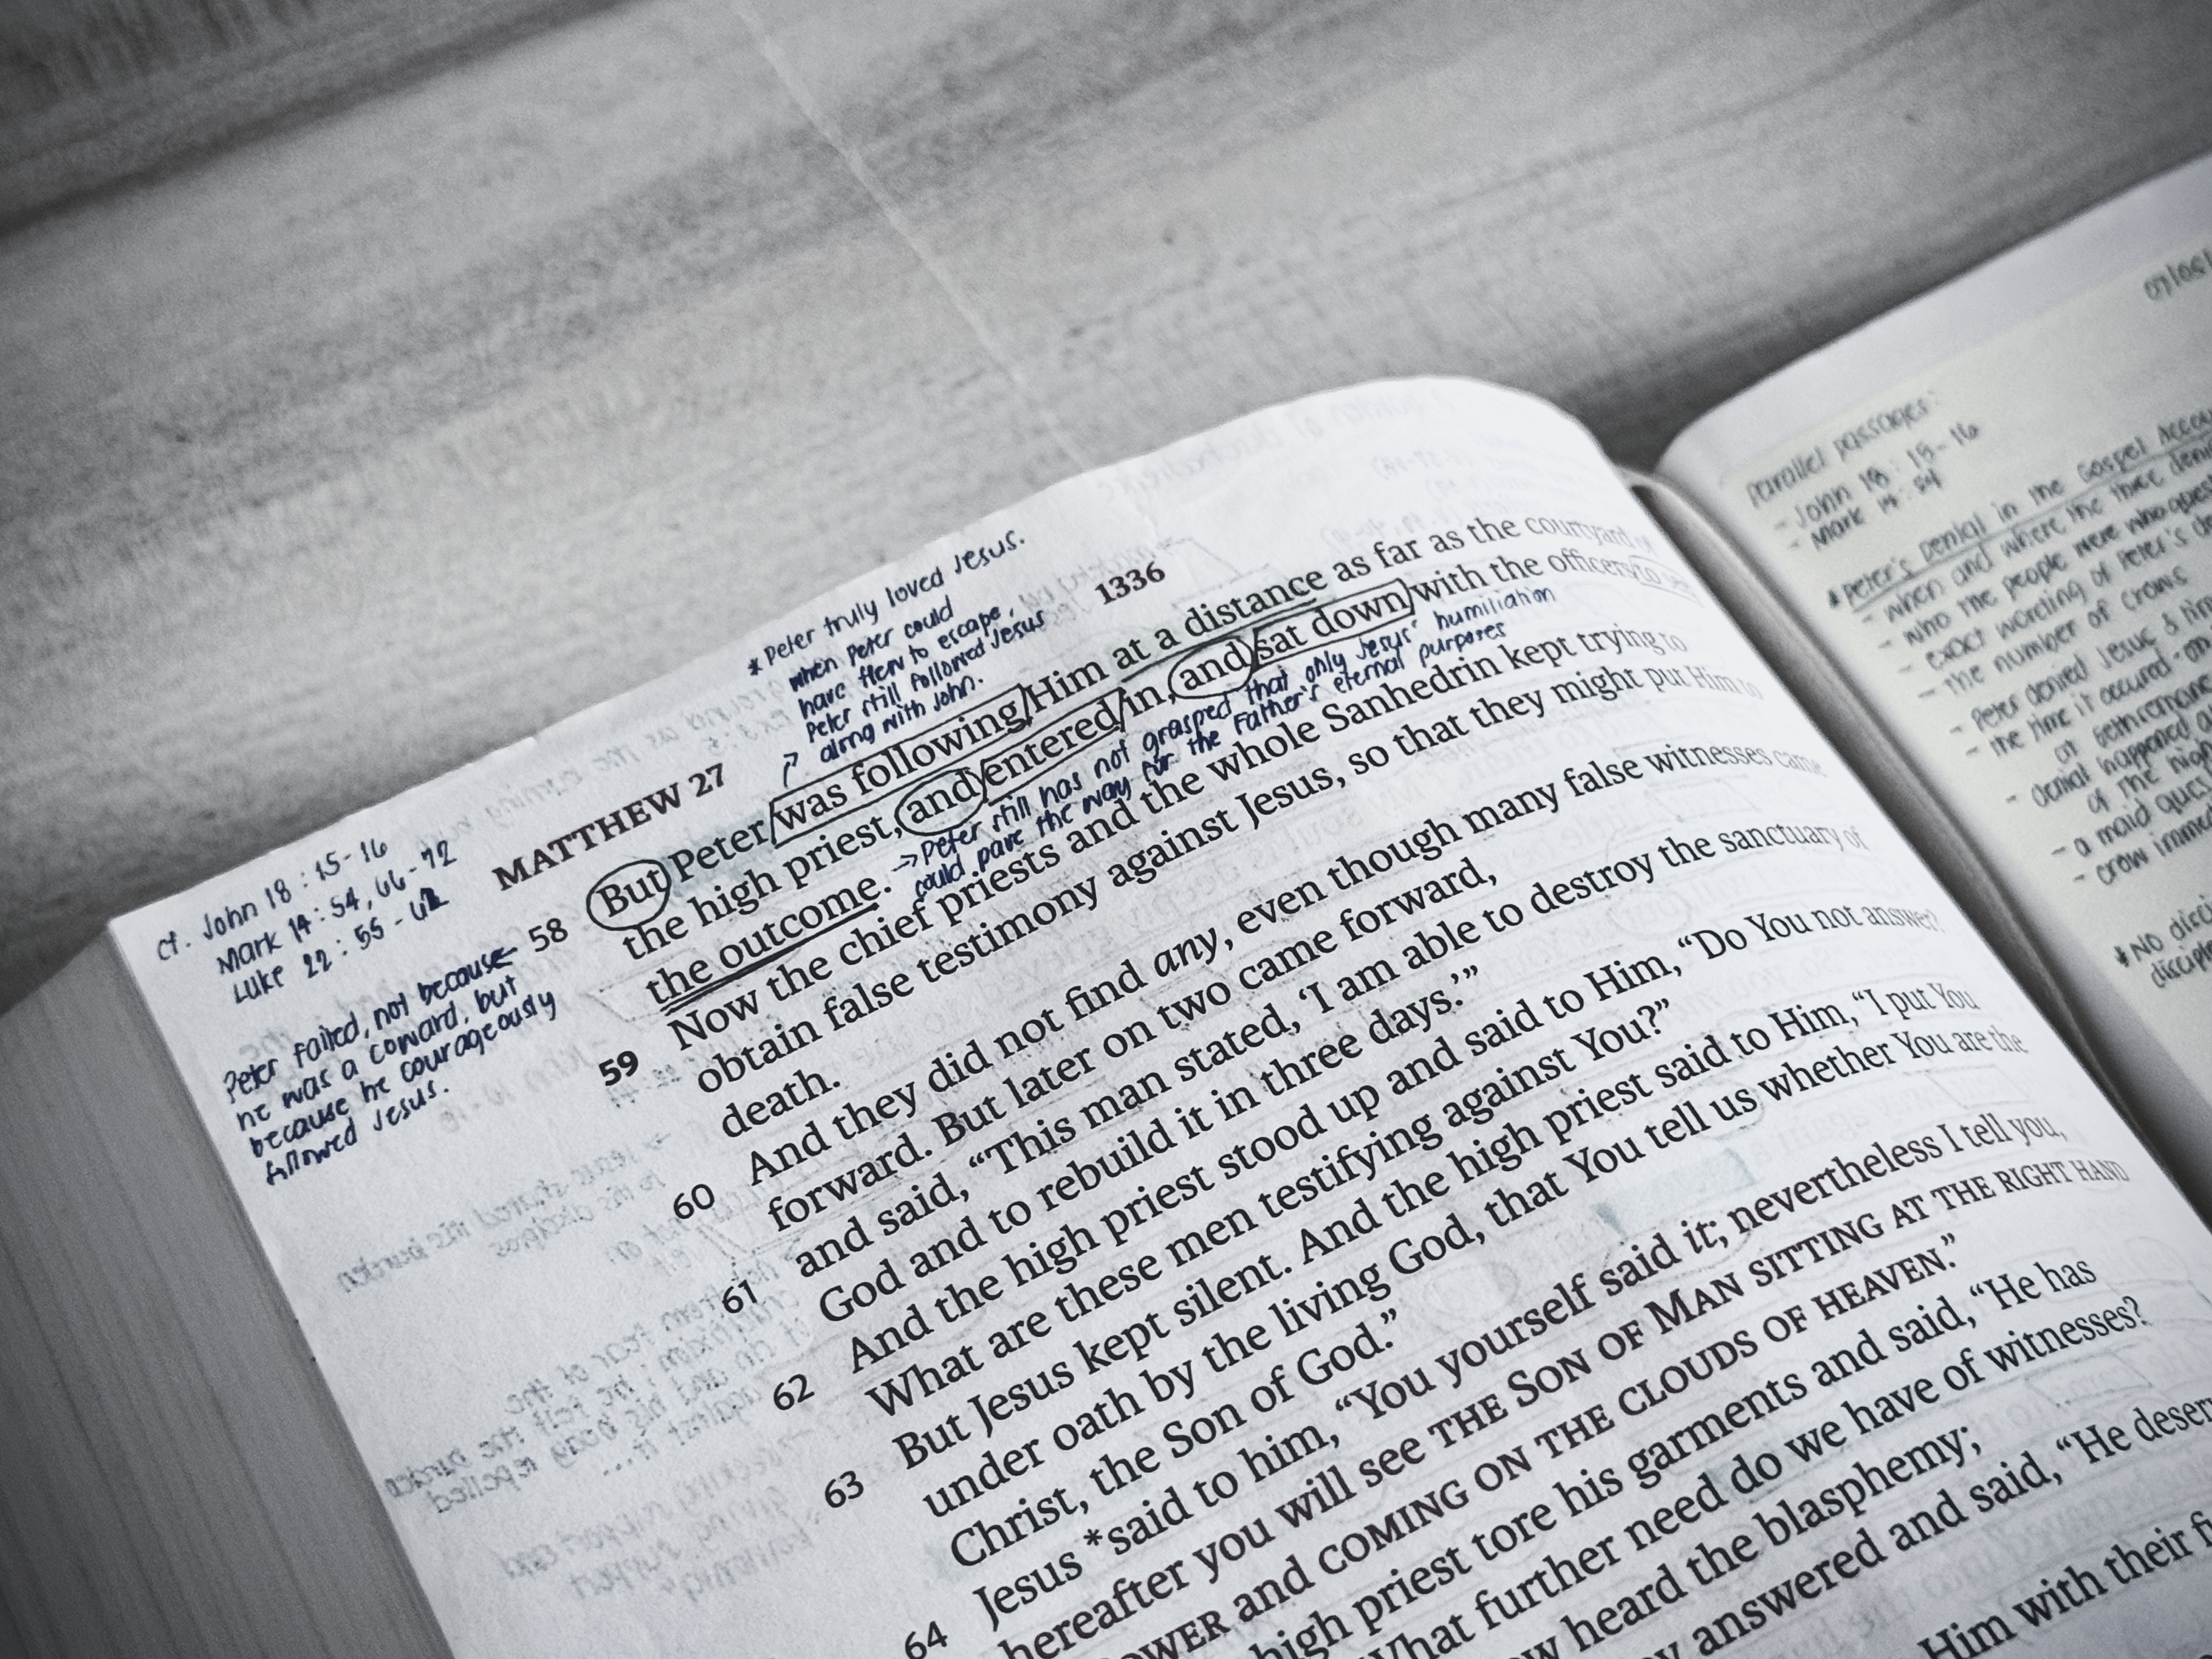 * Peter truly loved Jesus.
when Peter could
have flew to escape,
Peter still followed Jesus
along with John.
MATTHEW 27 1336
cf. John 18 : 15-16
Mark 14 : 54, 66-72
Luke 22 : 55 -
Peter failed, not because
he was a coward, but
because he courageously
followed Jesus.
58 But Peter was following Him at a distance as far as the courtyard of
the high priest, and entered in, and sat down with the officers to see
the outcome.
→ Peter still has not grasped that only Jesus' humiliation
could pave the way for the Father's eternal purposes
59 Now the chief priests and the whole Sanhedrin kept trying to
obtain false testimony against Jesus, so that they might put Him to
death.
60 And they did not find any, even though many false witnesses came
forward. But later on two came forward,
61 and said, “This man stated, ‘I am able to destroy the sanctuary of
God and to rebuild it in three days.’”
62 And the high priest stood up and said to Him, “Do You not answer?
What are these men testifying against You?”
63 But Jesus kept silent. And the high priest said to Him, “I put You
under oath by the living God, that You tell us whether You are the
Christ, the Son of God.”
64 Jesus *said to him, “You yourself said it; nevertheless I tell you,
hereafter you will see THE SON OF MAN SITTING AT THE RIGHT HAND
OWER and COMING ON THE CLOUDS OF HEAVEN.”
high priest tore his garments and said, “He has
What further need do we have of witnesses?
heard the blasphemy;
answered and said, “He
Him with their
Parallel passages:
- John 18 : 15-16
- Mark 14 : 54
* Peter's Denial in the Gospel
- when and where the three
- who the people were who
- exact wording of Peter's
- the number of crows
- Peter denied Jesus 3
- the time it occurred -
at Gethsemane
- denial happened
of the high
- a maid
- crow
* NO